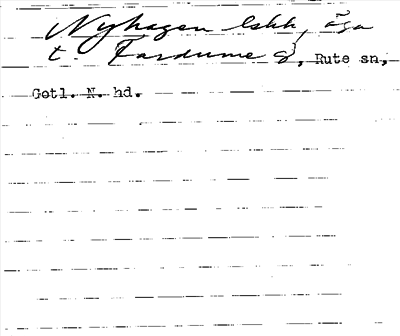 Nyhagen lshh, äga
t. Fardume g, Rute sn,
Gotl. N. hd.